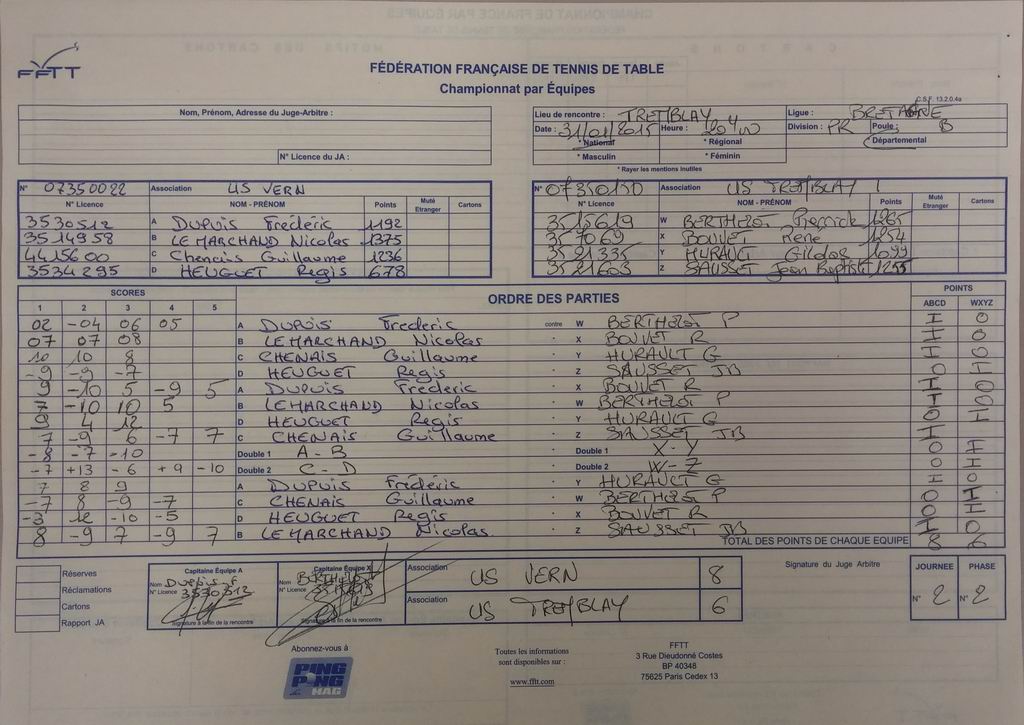 FFTT
FÉDÉRATION FRANÇAISE DE TENNIS DE TABLE
Championnat par Équipes
C.S.F. 13.2.0.4a
Nom, Prénom, Adresse du Juge-Arbitre :
N° Licence du JA :
Lieu de rencontre : TREMBLAY Ligue : BRETAGNE
Date : 31/01/2015 Heure : 20H00 Division : PR Poule : B
* National * Régional Départemental
* Masculin * Féminin
* Rayer les mentions inutiles
N° 07350022 Association US VERN
N° Licence NOM - PRÉNOM Points Muté Etranger Cartons
3530512 A DUPUIS Frédéric 1192
3514958 B LE MARCHAND Nicolas 1375
4415600 C Chenais Guillaume 1236
3534295 D HEUGUET Regis 678
N° 07350150 Association US TREMBLAY 1
N° Licence NOM - PRÉNOM Points Muté Etranger Cartons
3515619 W BERTHELOT Pierrick 1265
357069 X BOUVET René 1254
3521335 Y HURAULT Gildas 1099
3521603 Z SAUSSET Jean Baptiste 1255
SCORES ORDRE DES PARTIES POINTS
1 2 3 4 5 ABCD WXYZ
02 -04 06 05 A DUPUIS Frederic contre W BERTHELOT P I 0
07 07 08 B LEMARCHAND Nicolas X BOUVET R I 0
10 10 8 C CHENAIS Guillaume Y HURAULT G I 0
-9 -9 -7 D HEUGUET Regis Z SAUSSET JB 0 I
9 -10 5 -9 5 A DUPUIS Frederic X BOUVET R I 0
7 -10 10 5 B LEMARCHAND Nicolas W BERTHELOT P I 0
9 4 12 D HEUGUET Regis Y HURAULT G 0 I
-7 -9 6 -7 7 C CHENAIS Guillaume Z SAUSSET JB
-8 -7 -10 Double 1 A - B Double 1 X - Y 0 I
-7 +13 -6 +9 -10 Double 2 C - D Double 2 W - Z 0 I
7 8 9 A DUPUIS Frédéric Y HURAULT G I 0
-7 8 -9 -7 C CHENAIS Guillaume W BERTHELOT P 0 I
-3 12 -10 -5 D HEUGUET Regis X BOUVET R 0 I
8 -9 7 -9 7 B LEMARCHAND Nicolas Z SAUSSET JB I 0
TOTAL DES POINTS DE CHAQUE EQUIPE 8 6
Réserves
Réclamations
Cartons
Rapport JA
Capitaine Équipe A
Nom DUPUIS F
N° Licence 3530512
Signature à la fin de la rencontre
Capitaine Équipe X
Nom BERTHELOT
N° Licence
Signature à la fin de la rencontre
Association US VERN 8
Association US TREMBLAY 6
Signature du Juge Arbitre
JOURNEE PHASE
N° 2 N° 2
Abonnez-vous à
PING PONG MAG
Toutes les informations
sont disponibles sur :
www.fftt.com
FFTT
3 Rue Dieudonné Costes
BP 40348
75625 Paris Cedex 13